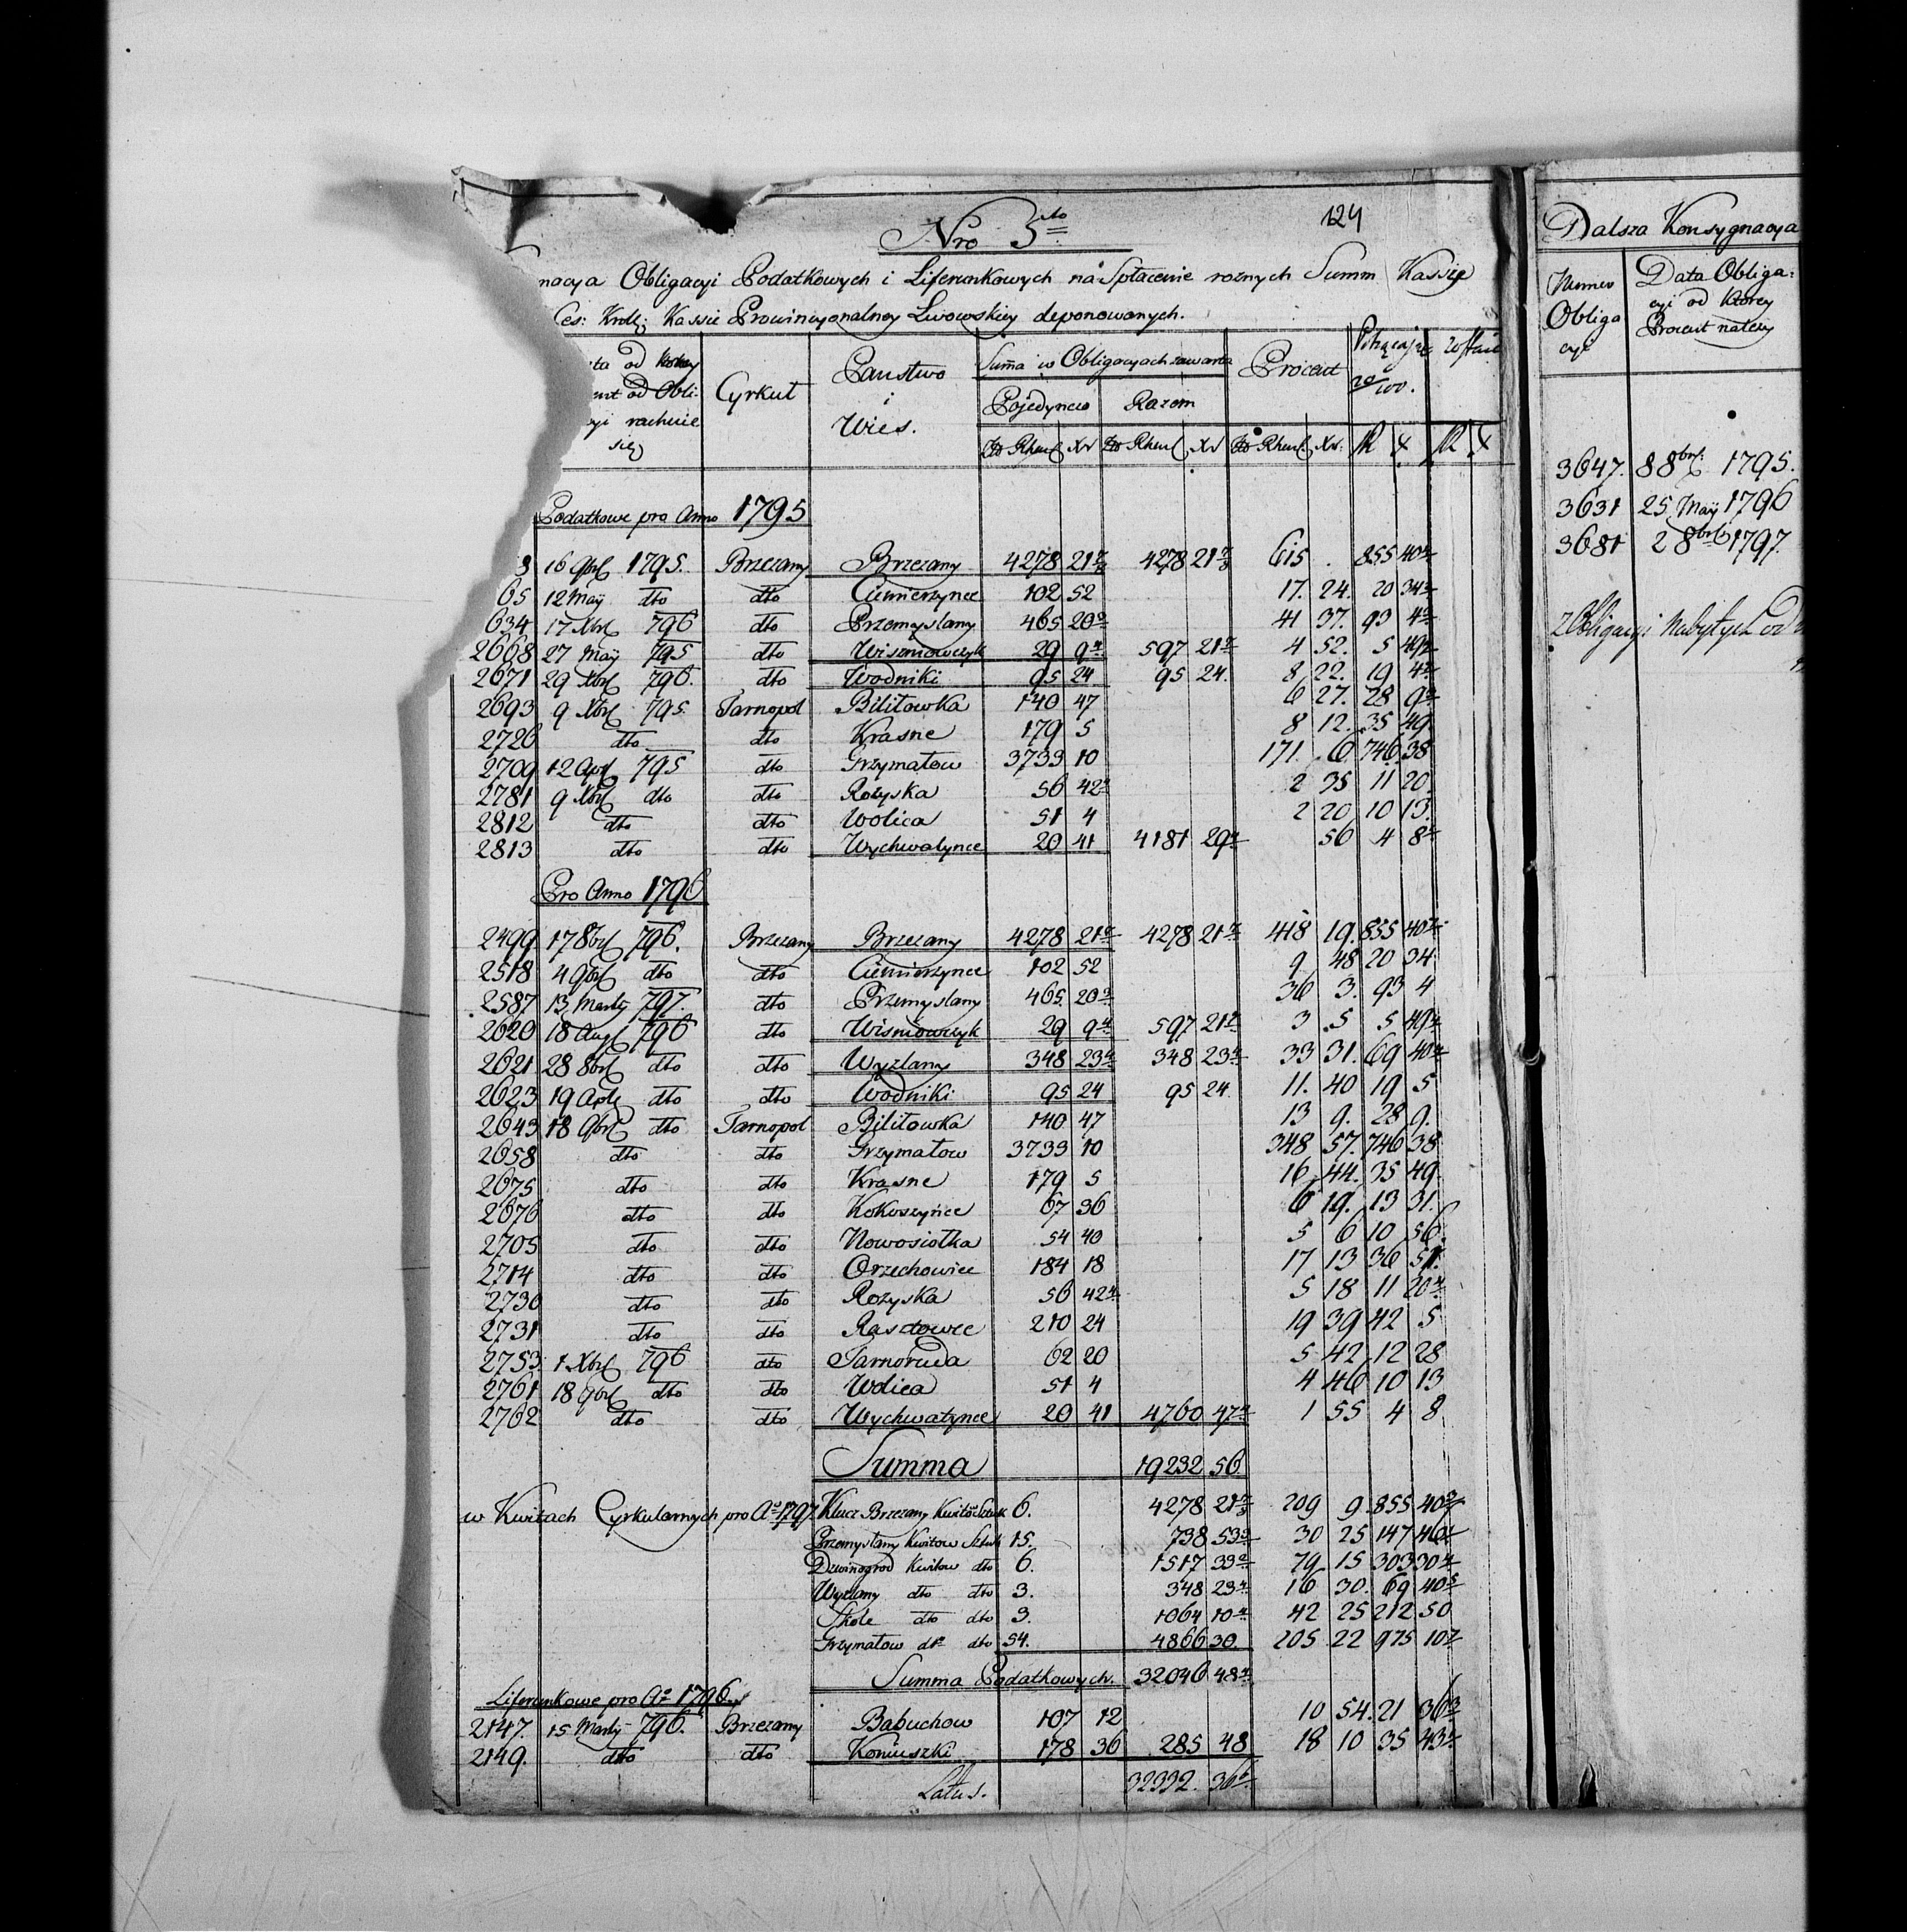 124
Nro 3tio
nacya Obligacyi Podatkowych i Liferunkowych na Spłacenie roznych Summ Kassie
Ces: Krol: Kassie Prowincyonalney Lwowskiey deponowanych.
ta od ktorey
ent od Obli-
yi rachuie
się
Cyrkuł
Panstwo
i
Wies.
Suma w Obligacyach zawarta
Pojedyncza Razem
Zło Rhens Xr Zło Rhens Xr Zło Rhens. Xr. R X R X
Procent
20/100.
Podatkowe pro Anno 1795
3 16 9br 1795. Brzezany Brzezany 4278 21 4278 21 615 . 855 40
65 12 May dto dto Ciemierzynce 102 52 17. 24. 20 34
634 17 Xbr 796 dto Przemyslany 465 20 41 37. 93 4
2668 27 May 795 dto Wisniowczyk 29 9 597 21 4 52. 5 49
2671 29 Xbr 796. dto Wodniki 95 24 95 24. 8 22. 19 4
2693 9 Xbr 795 Tarnopol Bilitowka 140 47 6 27. 28 9
2726 dto dto Krasne 179 5 8 12. 35 49.
2709 12 Apr 795 dto Grzymałow 3733 10 171. 6 746 38
2781 9 Xbr dto dto Rożyska 56 42 2 35 11 20
2812 dto dto Wolica 51 4 2 20 10 13.
2813 dto dto Wychwatynce 20 41 4181 29 56 4 8
Pro Anno 1796
2499 17 8br 796. Brzezany Brzezany 4278 21 4278 21 418 19. 855 40
2518 4 9br dto dto Ciemierzynce 102 52 9 48 20 34
2587 13 Marty 797. dto Przemyslany 465. 20 36 3. 93 4
2620 18 Aug 796 dto Wisniowczyk 29 9 597 21 3 5 5 49
2621 28 8br dto dto Wyzlany 348 23 348 23 33 31. 69 40
2623 19 Apr dto dto Wodniki 95 24 95 24. 11. 40 19 5
2643 18 9br dto Tarnopol Bilitowka 140 47 13 9. 28 9.
2658 dto dto Grzymałow 3733 10 348 57. 746 38
2675 dto dto Krasne 179 5 16 44. 35 49.
2676 dto dto Kokoszyńce 67 36 6 19. 13 31.
2705 dto dto Nowosiołka 54 40 5 6 10 56.
2714 dto dto Orzechowice 184 18 17 13 36 51.
2730 dto dto Rożyska 56 42 5 18 11 20
2731 dto dto Rasztowce 210 24 19 39 42 5
2753 1 Xbr 796 dto Tarnoruda 62 20 5 42 12 28
2761 18 9br dto dto Wolica 51 4 4 46 10 13
2762 dto dto Wychwatynce 20 41 4760 47 1 55 4 8
Summa 19232 56
w Kwitach Cyrkularnych pro Ao 1797. Klucz Brzezany Kwitow Sztuk 6. 4278 21 209 9. 855 40
Przemyslany Kwitow Sztuk 15. 738 53 30 25 147 46
Dzwinogrod Kwitow dto 6. 1517 33 79 15 303 30
Wyzlany dto dto 3. 348 23 16 30. 69 40
Skole dto dto 3. 1064 10 42 25 212 50
Grzymałow dto dto 54. 4866 30. 205 22 973 10
Summa Podatkowych. 32046 48
Liferunkowe pro Ao 1796.
2147. 15 Marty 796. Brzezany Babuchow 107 12 10 54. 21 36
2149. dto dto Koniuszki 178 36 285 48 18 10 35 43
Latus. 32332. 36
Dalsza Konsygnacya
Numer
Obliga
cyi
Data Obliga:
cyi od ktorey
Procent należy
3647. 8 8br. 1795.
3631 25 May 1796
3681 2 8br 1797.
Obligacyi Nabytych od